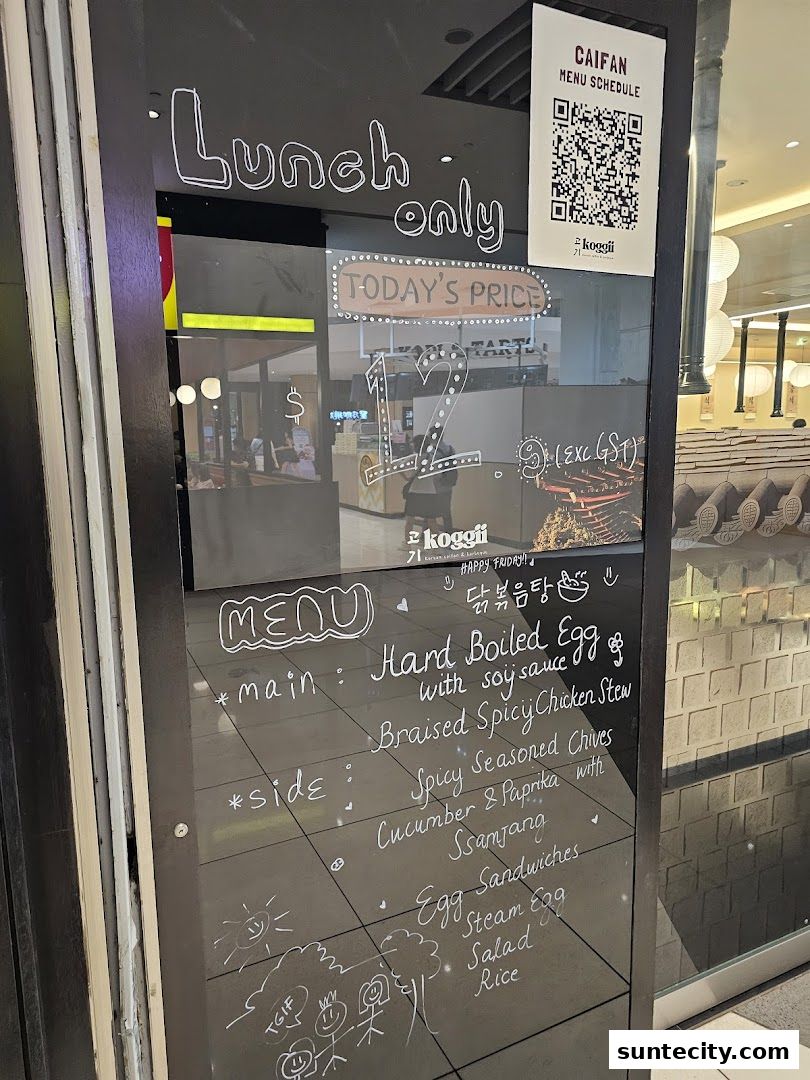 CAIFAN
MENU SCHEDULE
고기 koggii
Lunch
only
TODAY'S PRICE
$ 12.9 (EXC. GST)
고기 koggii
Korean caifan & barbeque
HAPPY FRIDAY!!
닭볶음탕
MENU
*main : Hard Boiled Egg
with soy sauce
Braised Spicy Chicken Stew
*side : Spicy Seasoned Chives
Cucumber & Paprika with
Ssamjang
Egg Sandwiches
Steam Egg
Salad
Rice
TGIF
suntecity.com